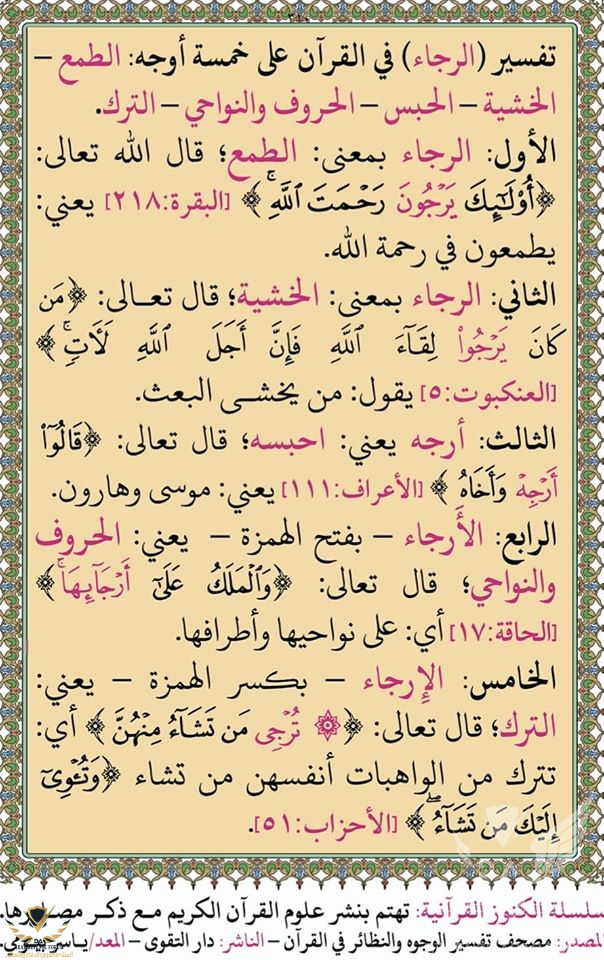 تفسير (الرجاء) في القرآن على خمسة أوجه: الطمع –
الخشية – الحبس – الحروف والنواحي – الترك.
الأول: الرجاء بمعنى: الطمع؛ قال الله تعالى:
﴿أُوْلَـٰٓئِكَ يَرْجُونَ رَحْمَتَ ٱللَّهِۚ﴾ [البقرة:٢١٨] يعني:
يطمعون في رحمة الله.
الثاني: الرجاء بمعنى: الخشية؛ قال تعالى: ﴿مَن
كَانَ يَرْجُواْ لِقَآءَ ٱللَّهِ فَإِنَّ أَجَلَ ٱللَّهِ لَأٓتٖۚ﴾
[العنكبوت:٥] يقول: من يخشى البعث.
الثالث: أرجه يعني: احبسه؛ قال تعالى: ﴿قَالُوٓاْ
أَرْجِهْ وَأَخَاهُ﴾ [الأعراف:١١١] يعني: موسى وهارون.
الرابع: الأَرجاء – بفتح الهمزة – يعني: الحروف
والنواحي؛ قال تعالى: ﴿وَٱلْمَلَكُ عَلَىٰٓ أَرْجَآئِهَاۚ﴾
[الحاقة:١٧] أي: على نواحيها وأطرافها.
الخامس: الإِرجاء – بكسر الهمزة – يعني:
الترك؛ قال تعالى: ﴿۞ تُرْجِي مَن تَشَآءُ مِنْهُنَّ﴾ أي:
تترك من الواهبات أنفسهن من تشاء ﴿وَتُـْٔوِيٓ
إِلَيْكَ مَن تَشَآءُۖ﴾ [الأحزاب:٥١].
سلسلة الكنوز القرآنية: تهتم بنشر علوم القرآن الكريم مع ذكر مصادرها.
المصدر: مصحف تفسير الوجوه والنظائر في القرآن – الناشر: دار التقوى – المعد/